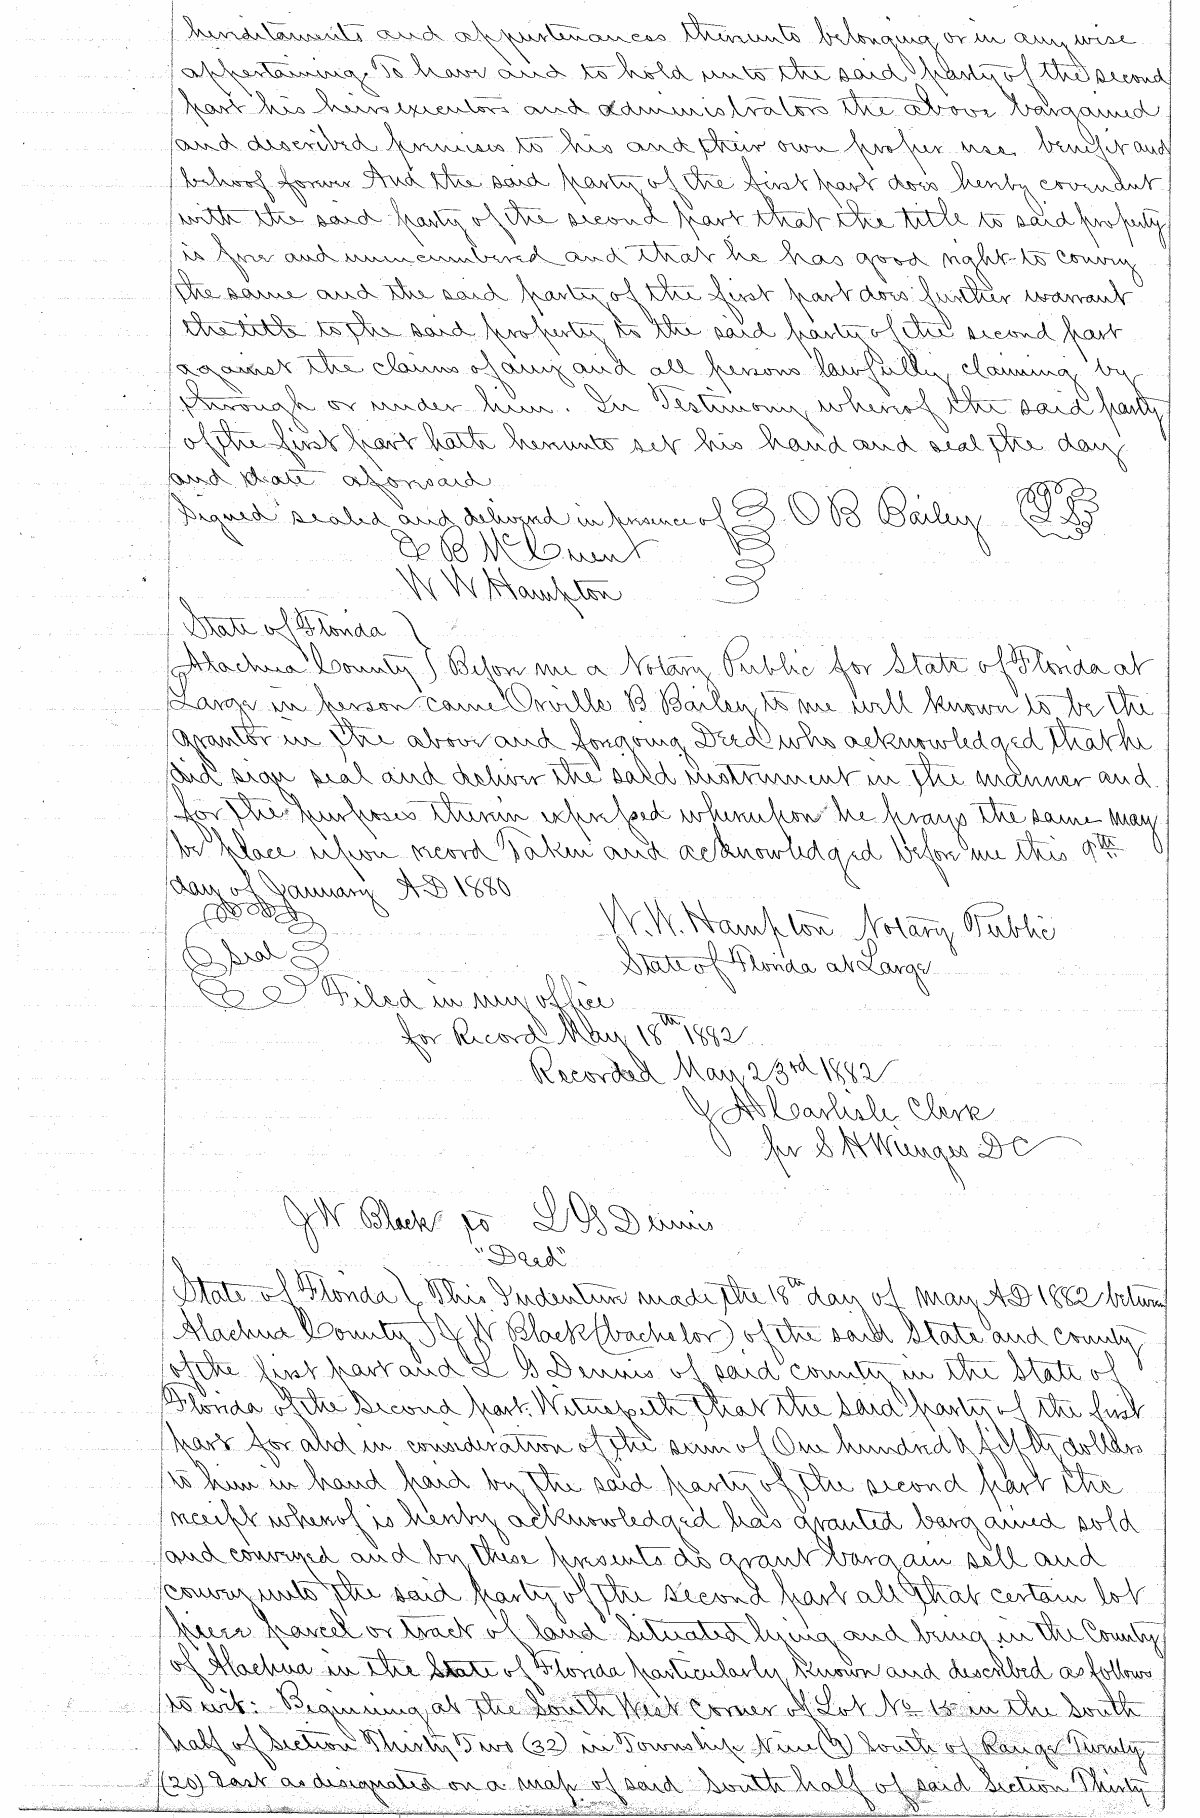 hereditaments and appurtenances thereunto belonging or in any wise
appertaining. To have and to hold unto the said party of the second
part his heirs executors and administrators the above bargained
and described premises to his and their own proper use benefit and
behoof forever And the said party of the first part does hereby covenant
with the said party of the second part that the title to said property
is free and unincumbered and that he has good right to convey
the same and the said party of the first part does further warrant
the title to the said property to the said party of the second part
against the claims of any and all persons lawfully claiming by
through or under him. In Testimony whereof the said party
of the first part hath hereunto set his hand and seal the day
and date aforesaid
Signed sealed and delivered in presence of O B Bailey
B McCuent
W W Hampton
State of Florida )
Alachua County ) Before me a Notary Public for State of Florida at
Large in person came Orville B Bailey to me well known to be the
grantor in the above and foregoing Deed who acknowledged that he
did sign seal and deliver the said instrument in the manner and
for the purposes therein expressed whereupon he prays the same may
be place upon record Taken and acknowledged before me this 9th
day of January AD 1880
W. W. Hampton Notary Public
Seal
State of Florida at Large
Filed in my office
for Record May 18th 1882
Recorded May 23rd 1882
J A Carlisle Clerk
per S H Wienges DC
J W Black to L G Dennis
"Deed"
State of Florida ( This Indenture made the 18th day of May AD 1882 between
Alachua County ) J W Black (bachelor) of the said State and county
of the first part and L G Dennis of said county in the State of
Florida of the Second part. Witnesseth that the said party of the first
part for and in consideration of the sum of One hundred & fifty dollars
to him in hand paid by the said party of the second part the
receipt whereof is hereby acknowledged has granted bargained sold
and conveyed and by these presents do grant bargain sell and
convey unto the said party of the second part all that certain lot
piece parcel or tract of land situated lying and being in the County
of Alachua in the State of Florida particularly known and described as follows
to wit: Beginning at the South West corner of Lot No 15 in the South
half of Section Thirty Two (32) in Township Nine (9) South of Range Twenty
(20) East as designated on a map of said South half of said Section Thirty